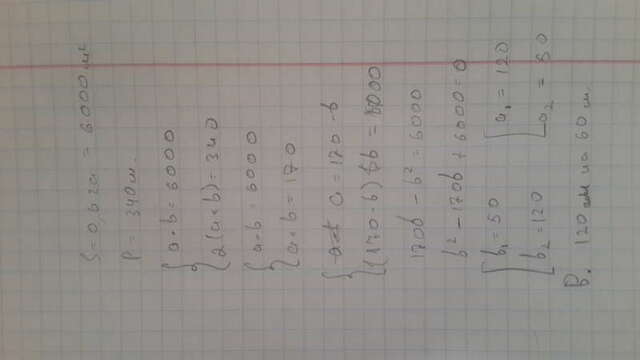 S = 0,6 га = 6000 м²
P = 340 м.
{ a · b = 6000
{ 2(a + b) = 340
{ a · b = 6000
{ a + b = 170
{ a = 170 - b
{ (170 - b) b = 6000
170b - b² = 6000
b² - 170b + 6000 = 0
[ b₁ = 50 [ a₁ = 120
[ b₂ = 120 [ a₂ = 50
В. 120 на 60 м.